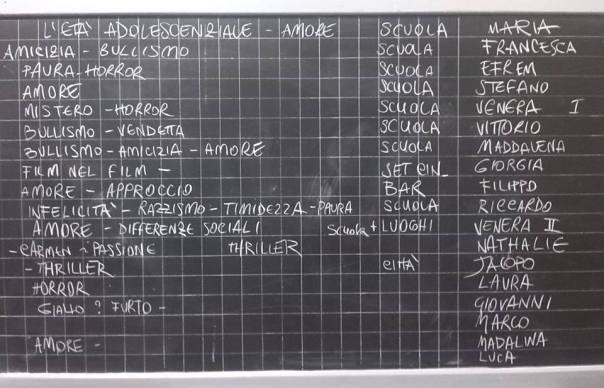 L'ETÀ ADOLESCENZIALE - AMORE SCUOLA MARIA
AMICIZIA - BULLISMO SCUOLA FRANCESCA
PAURA - HORROR SCUOLA EFREM
AMORE SCUOLA STEFANO
MISTERO - HORROR SCUOLA VENERA I
BULLISMO - VENDETTA SCUOLA VITTORIO
BULLISMO - AMICIZIA - AMORE SCUOLA MADDALENA
FILM NEL FILM - SET CIN_ GIORGIA
AMORE - APPROCCIO BAR FILIPPO
INFELICITÀ - RAZZISMO - TIMIDEZZA - PAURA SCUOLA RICCARDO
AMORE - DIFFERENZE SOCIALI SCUOLA + LUOGHI VENERA II
- CARMEN PASSIONE THRILLER NATHALIE
- THRILLER CITTÀ JACOPO
HORROR LAURA
GIALLO ? FURTO - GIOVANNI
MARCO
AMORE - MADALINA
LUCA